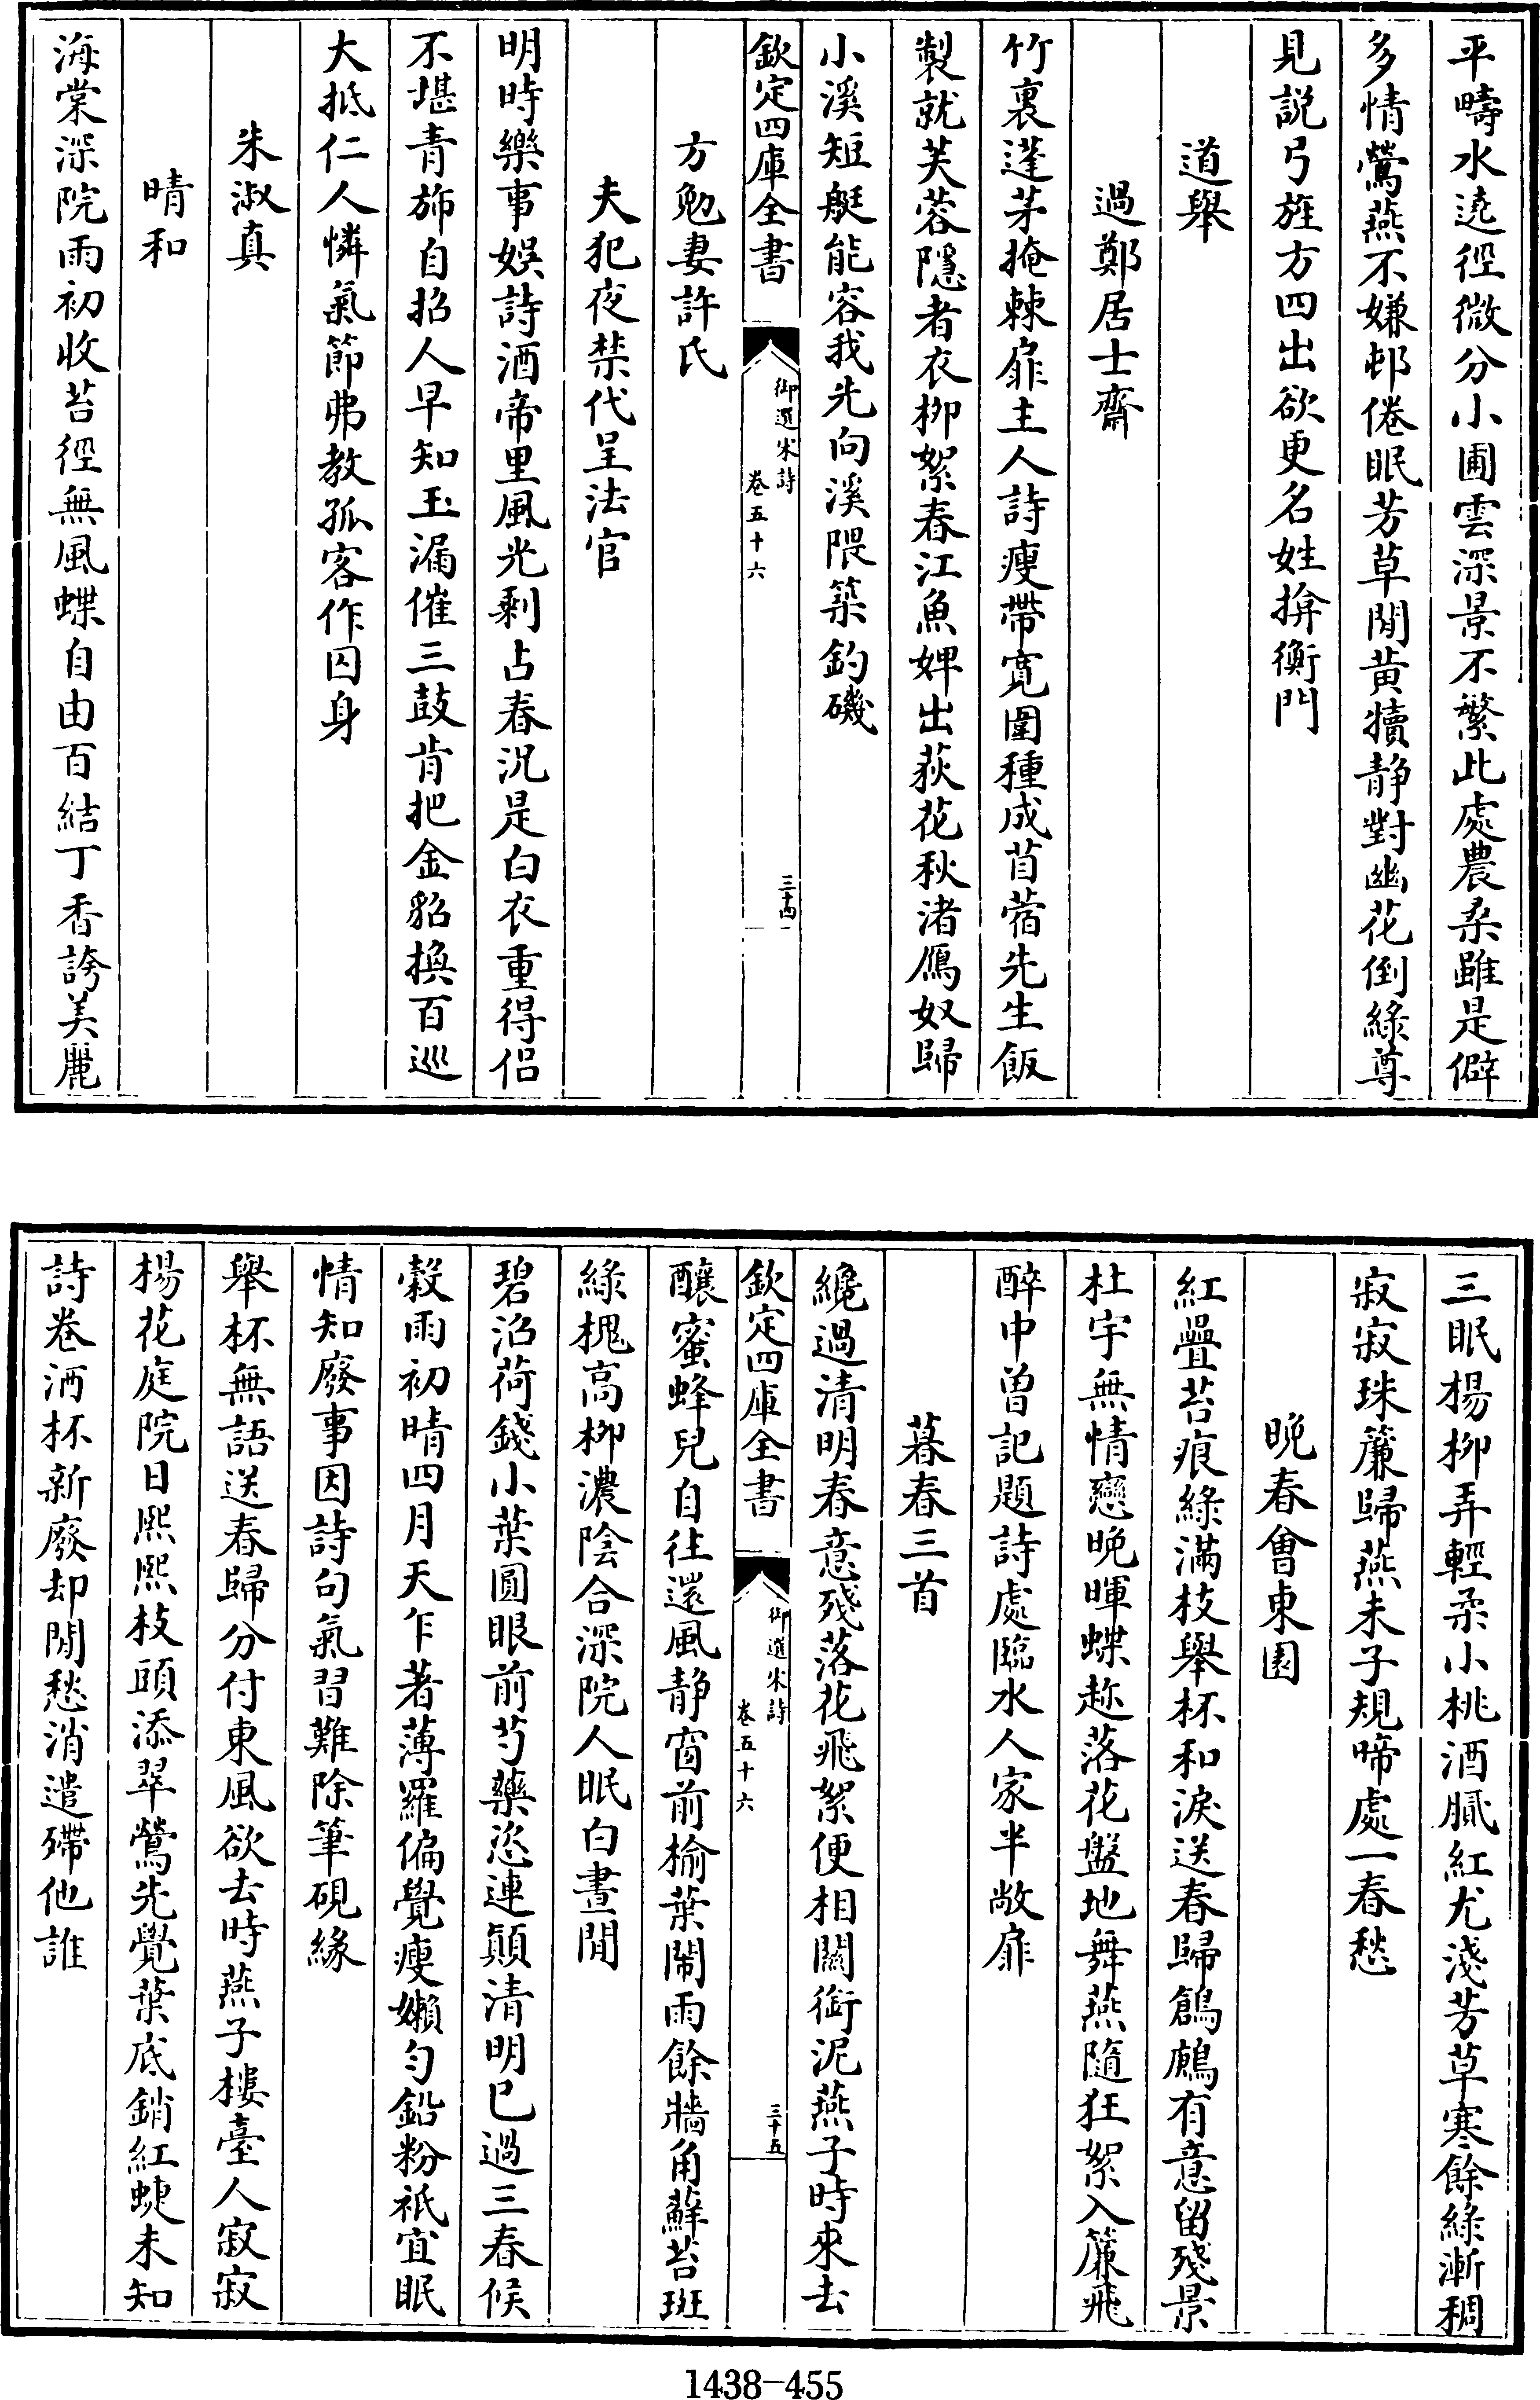 平疇水遶徑微分小圃雲深景不繁此處農桑雖是僻
多情鶯燕不嫌邨倦眠芳草閒黄犢静對幽花倒綠尊
見説弓旌方四出欲更名姓揜衡門
道舉
過鄭居士齋
竹裏蓬茅掩棘扉主人詩瘦帶寛圍種成苜蓿先生飯
製就芙蓉隱者衣柳絮春江魚婢出荻花秋渚鴈奴歸
小溪短艇能容我先向溪隈築釣磯
欽定四庫全書
御選宋詩
卷五十六
三十四
方勉妻許氏
夫犯夜禁代呈法官
明時樂事娛詩酒帝里風光剩占春況是白衣重得侣
不堪青斾自招人早知玉漏催三鼓肯把金貂換百巡
大抵仁人憐氣節弗教孤客作囚身
朱淑真
晴和
海棠深院雨初收苔徑無風蝶自由百結丁香誇美麗
三眠楊柳弄輕柔小桃酒膩紅尤淺芳草寒餘綠漸稠
寂寂珠簾歸燕未子規啼處一春愁
晚春會東園
紅疊苔痕綠滿枝舉杯和淚送春歸鶬鶊有意留殘景
杜宇無情戀晚暉蝶趂落花盤地舞燕隨狂絮入簾飛
醉中曽記題詩處臨水人家半敞扉
暮春三首
纔過清明春意殘落花飛絮便相關銜泥燕子時來去
欽定四庫全書
御選宋詩
卷五十六
三十五
釀蜜蜂兒自往還風静窗前榆葉鬧雨餘牆角蘚苔斑
綠槐高柳濃陰合深院人眠白晝閒
碧沼荷錢小葉圓眼前芍藥恣連顛清明已過三春候
穀雨初晴四月天乍著薄羅偏覺瘦嬾勻鉛粉祇宜眠
情知廢事因詩句氣習難除筆硯緣
舉杯無語送春歸分付東風欲去時燕子樓臺人寂寂
楊花庭院日熙熙枝頭添翠鶯先覺葉底銷紅蜨未知
詩卷酒杯新廢却閒愁消遣殢他誰
1438-455